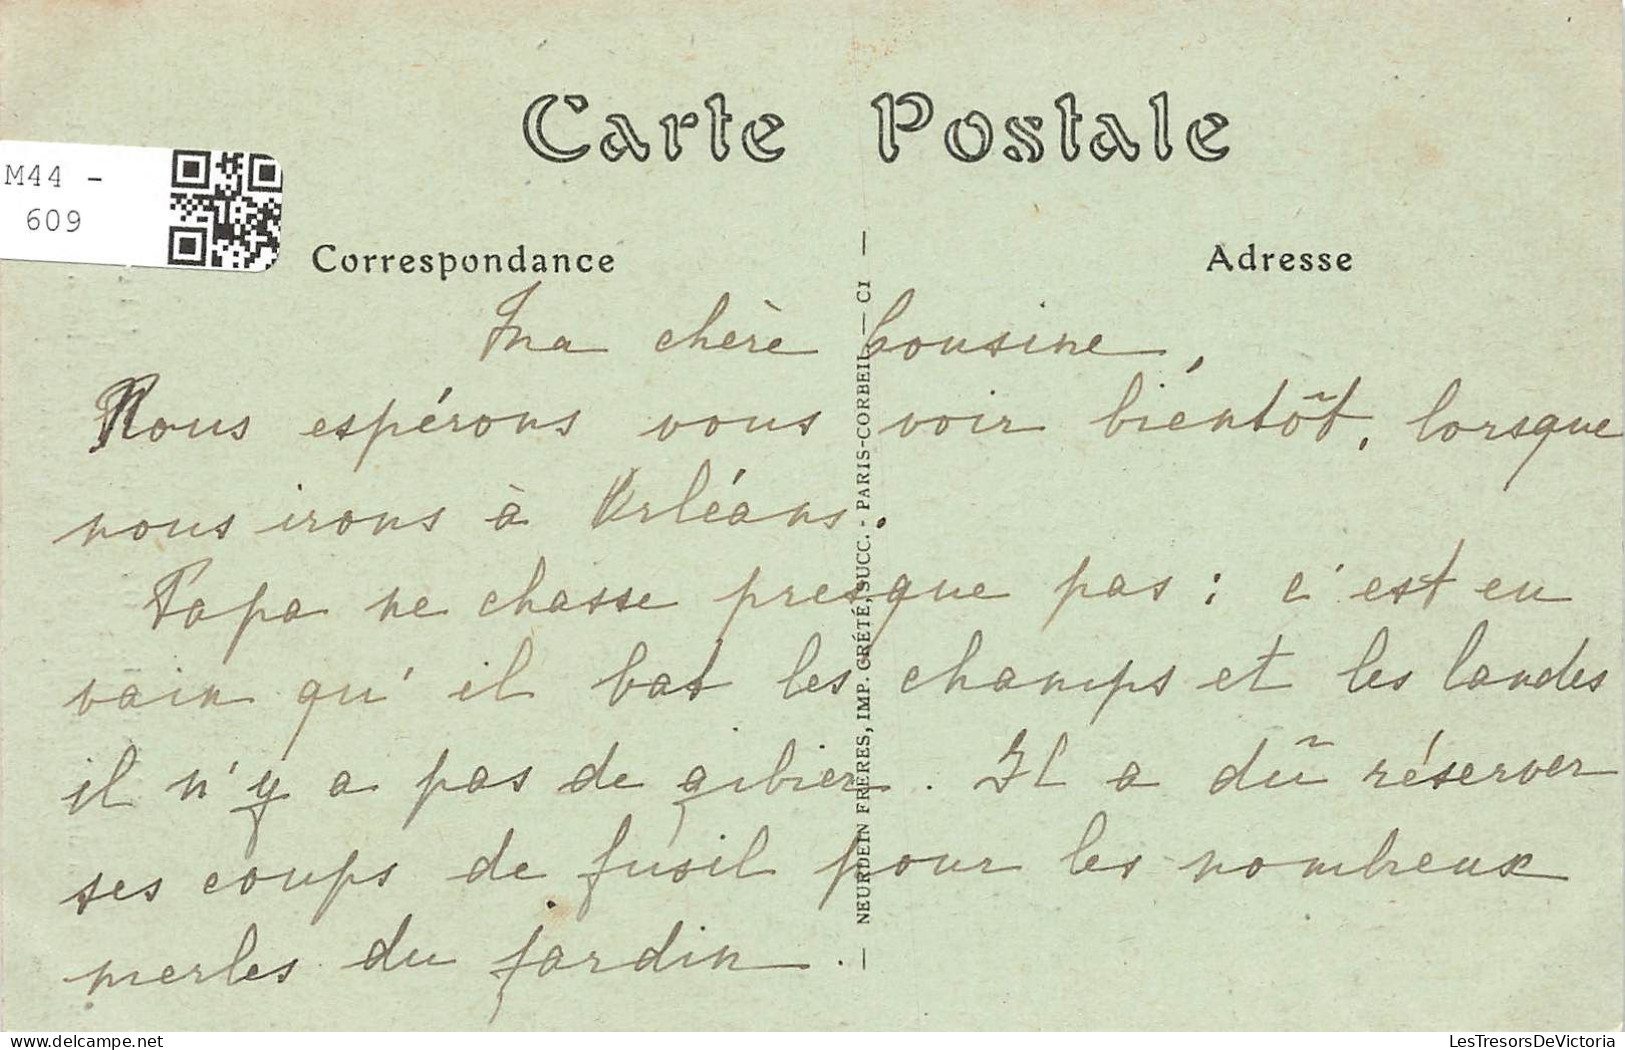 Carte Postale
M44 -
609
Correspondance
Adresse
Ma chère Cousine,
Nous espérons vous voir bientôt, lorsque
nous irons à Orléans.
Papa ne chasse presque pas : c'est en
vain qu'il bat les champs et les landes
il n'y a pas de gibier. Il a dû réserver
ses coups de fusil pour les nombreux
merles du jardin.
— NEURDEIN FRÈRES, IMP. CRÉTÉ, SUCC. - PARIS-CORBEIL — CI —
delcampe.net
LesTresorsDeVictoria